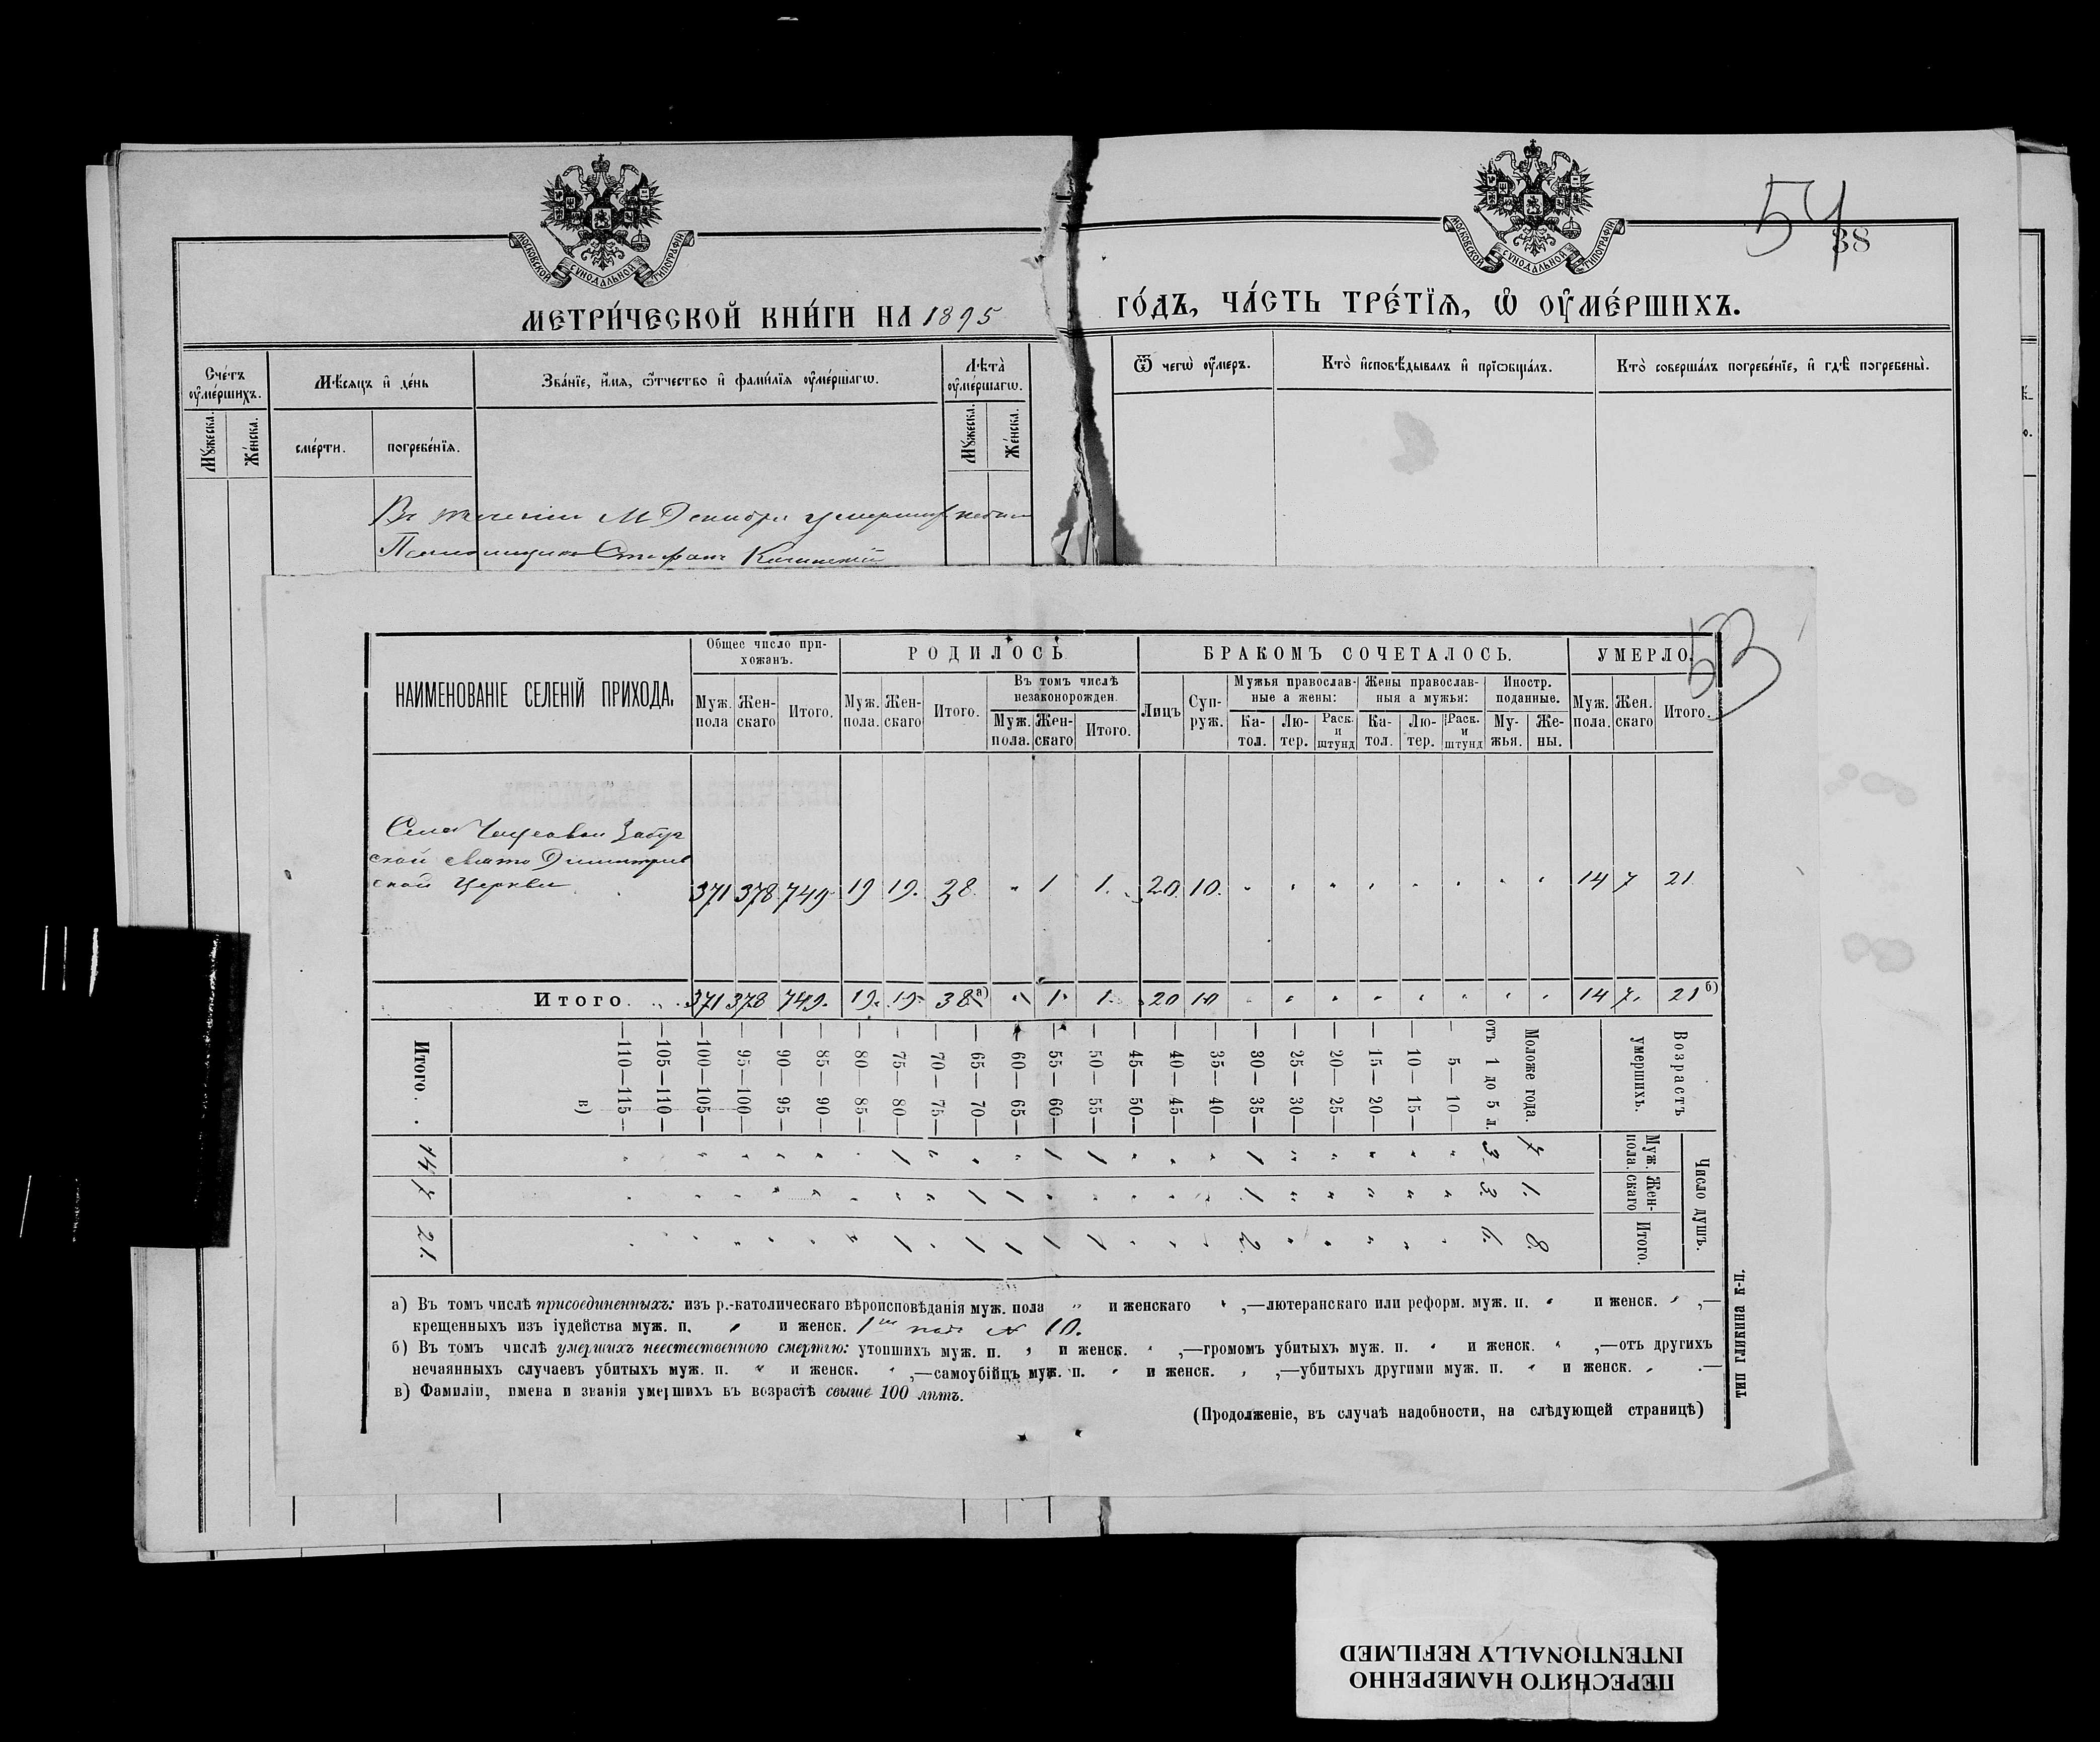 МОСКОВСКОЙ СѴНОДАЛЬНОЙ ТИПОГРАФІИ
МОСКОВСКОЙ СѴНОДАЛЬНОЙ ТИПОГРАФІИ
54
38
МЕТРИ́ЧЕСКОЙ КНИ́ГИ НА 1895
ГО́ДЪ, ЧА́СТЬ ТРЕ́ТІѦ, Ѡ҆ ОУ҆МЕ́РШИХЪ.
Сче́тъ оу҆ме́ршихъ.
Мꙋ́жеска.
Же́нска.
Мѣ́сѧцъ и҆ де́нь
сме́рти.
погребе́нїѧ.
Зва́нїе, и҆́мѧ, ѻ҆́тчество и҆ фами́лїѧ оу҆ме́ршагѡ.
Лѣ́та оу҆ме́ршагѡ.
Мꙋ́жеска.
Же́нска.
Ѿ чегѡ̀ оу҆́меръ.
Кто̀ и҆сповѣ́дывалъ и҆ прїѡбща́лъ.
Кто̀ соверша́лъ погребе́нїе, и҆ гдѣ̀ погребены̀.
Въ теченіи М Декабря умершихъ небыло
Псаломщикъ Стефанъ
53
НАИМЕНОВАНІЕ СЕЛЕНІЙ ПРИХОДА.
Общее число при-
хожанъ.
Муж. пола
Жен-скаго
Итого.
РОДИЛОСЬ
Муж. пола.
Жен-скаго
Итого.
Въ томъ числѣ
незаконорожден.
Муж. пола.
Жен-скаго
Итого.
БРАКОМЪ СОЧЕТАЛОСЬ.
Лицъ
Суп-руж.
Мужья православ-
ные а жены:
Ка-тол.
Лю-тер.
Раск. и штунд
Жены православ-
ныя а мужья:
Ка-тол.
Лю-тер.
Раск. и штунд
Иностр.
поданные.
Му-жья.
Же-ны.
УМЕРЛО.
Муж. пола.
Жен. скаго
Итого.
Села
свято Димитріев
ской Церкви
371 378 749 19 19. 38. " 1 1. 20. 10. " " " " " " " " 14 7 21
Итого. . . . 371 378 749. 19. 19. 38 а) " 1. 1. 20 10 " " " " " " " " 14 7. 21 б)
Возрастъ умершихъ.
Моложе года.
отъ 1 до 5 л.
— 5—10—
—10—15—
—15—20—
—20—25—
—25—30—
—30—35—
—35—40—
—40—45—
—45—50—
—50—55—
—55—60—
—60—65—
—65—70—
—70—75—
—75—80—
—80—85—
—85—90
—90—95
—95—100—
—100—105—
—105—110—
—110—115—
в)
Итого.
Число душъ.
Муж. пола. 7 3 " " " " " 1 " " " 1 1 " " " 1 " " " " " " 14
Жен-скаго 1. 3. " " " " " 1 " " " " " 1 1 " " " " " " " " 7
Итого. 8. 6. " " " " " 2. " " " 1 1 1 1 " 1 " " " " " " 21.
а) Въ томъ числѣ присоединенныхъ: изъ р.-католическаго вѣроисповѣданія муж. пола " и женскаго " ,—лютеранскаго или реформ. муж. п. " и женск. " ,—
крещенныхъ изъ іудейства муж. п. " и женск. 1 на подъ № 10.
б) Въ томъ числѣ умершихъ неестественною смертію: утопшихъ муж. п. " и женск. " ,—громомъ убитыхъ муж. п. " и женск. " ,—отъ другихъ
нечаянныхъ случаевъ убитыхъ муж. п. " и женск. " ,—самоубійцъ муж. п. " и женск. " ,—убитыхъ другими муж. п. " и женск. " .—
в) Фамиліи, имена и званія умершихъ въ возрастѣ свыше 100 лѣтъ.
(Продолженіе, въ случаѣ надобности, на слѣдующей страницѣ)
ТИП ГЛИКИНА К-П.
ПЕРЕСНЯТО НАМЕРЕННО
INTENTIONALLY REFILMED